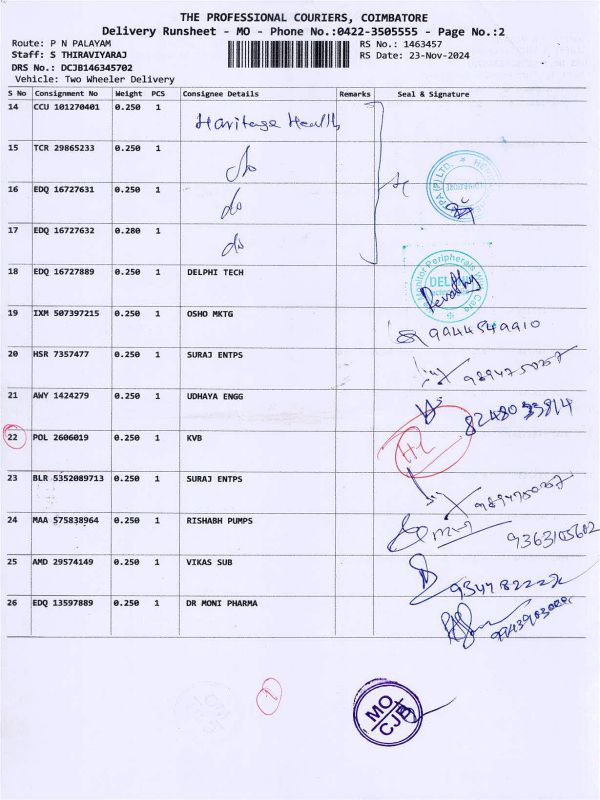 THE PROFESSIONAL COURIERS, COIMBATORE
Delivery Runsheet - MO - Phone No.:0422-3505555 - Page No.:2
Route: P N PALAYAM
RS No.: 1463457
Staff: S THIRAVIYARAJ
RS Date: 23-Nov-2024
DRS No.: DCJB146345702
Vehicle: Two Wheeler Delivery
S No Consignment No Weight PCS Consignee Details Remarks Seal & Signature
14 CCU 101270401 0.250 1 Heritage Health
15 TCR 29865233 0.250 1 do
16 EDQ 16727631 0.250 1 do
17 EDQ 16727632 0.280 1 do
18 EDQ 16727889 0.250 1 DELPHI TECH Revathy
19 IXM 507397215 0.250 1 OSHO MKTG 9944549910
20 HSR 7357477 0.250 1 SURAJ ENTPS
21 AWY 1424279 0.250 1 UDHAYA ENGG
22 POL 2606019 0.250 1 KVB
23 BLR 5352089713 0.250 1 SURAJ ENTPS
24 MAA 575838964 0.250 1 RISHABH PUMPS 9363105602
25 AMD 29574149 0.250 1 VIKAS SUB
26 EDQ 13597889 0.250 1 DR MONI PHARMA
MO
CJB